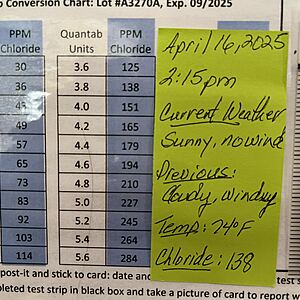 Conversion Chart: Lot #A3270A, Exp. 09/2025
PPM Chloride Quantab Units PPM Chloride
30 3.6 125
36 3.8 138
43 4.0 151
49 4.2 165
57 4.4 179
65 4.6 194
73 4.8 210
83 5.0 227
92 5.2 245
103 5.4 264
114 5.6 284
April 16, 2025
2:15pm
Current Weather
Sunny, no wind
Previous:
Cloudy, windy
Temp: 74°F
Chloride: 138
post-it and stick to card: date and
test strip in black box and take a picture of card to report